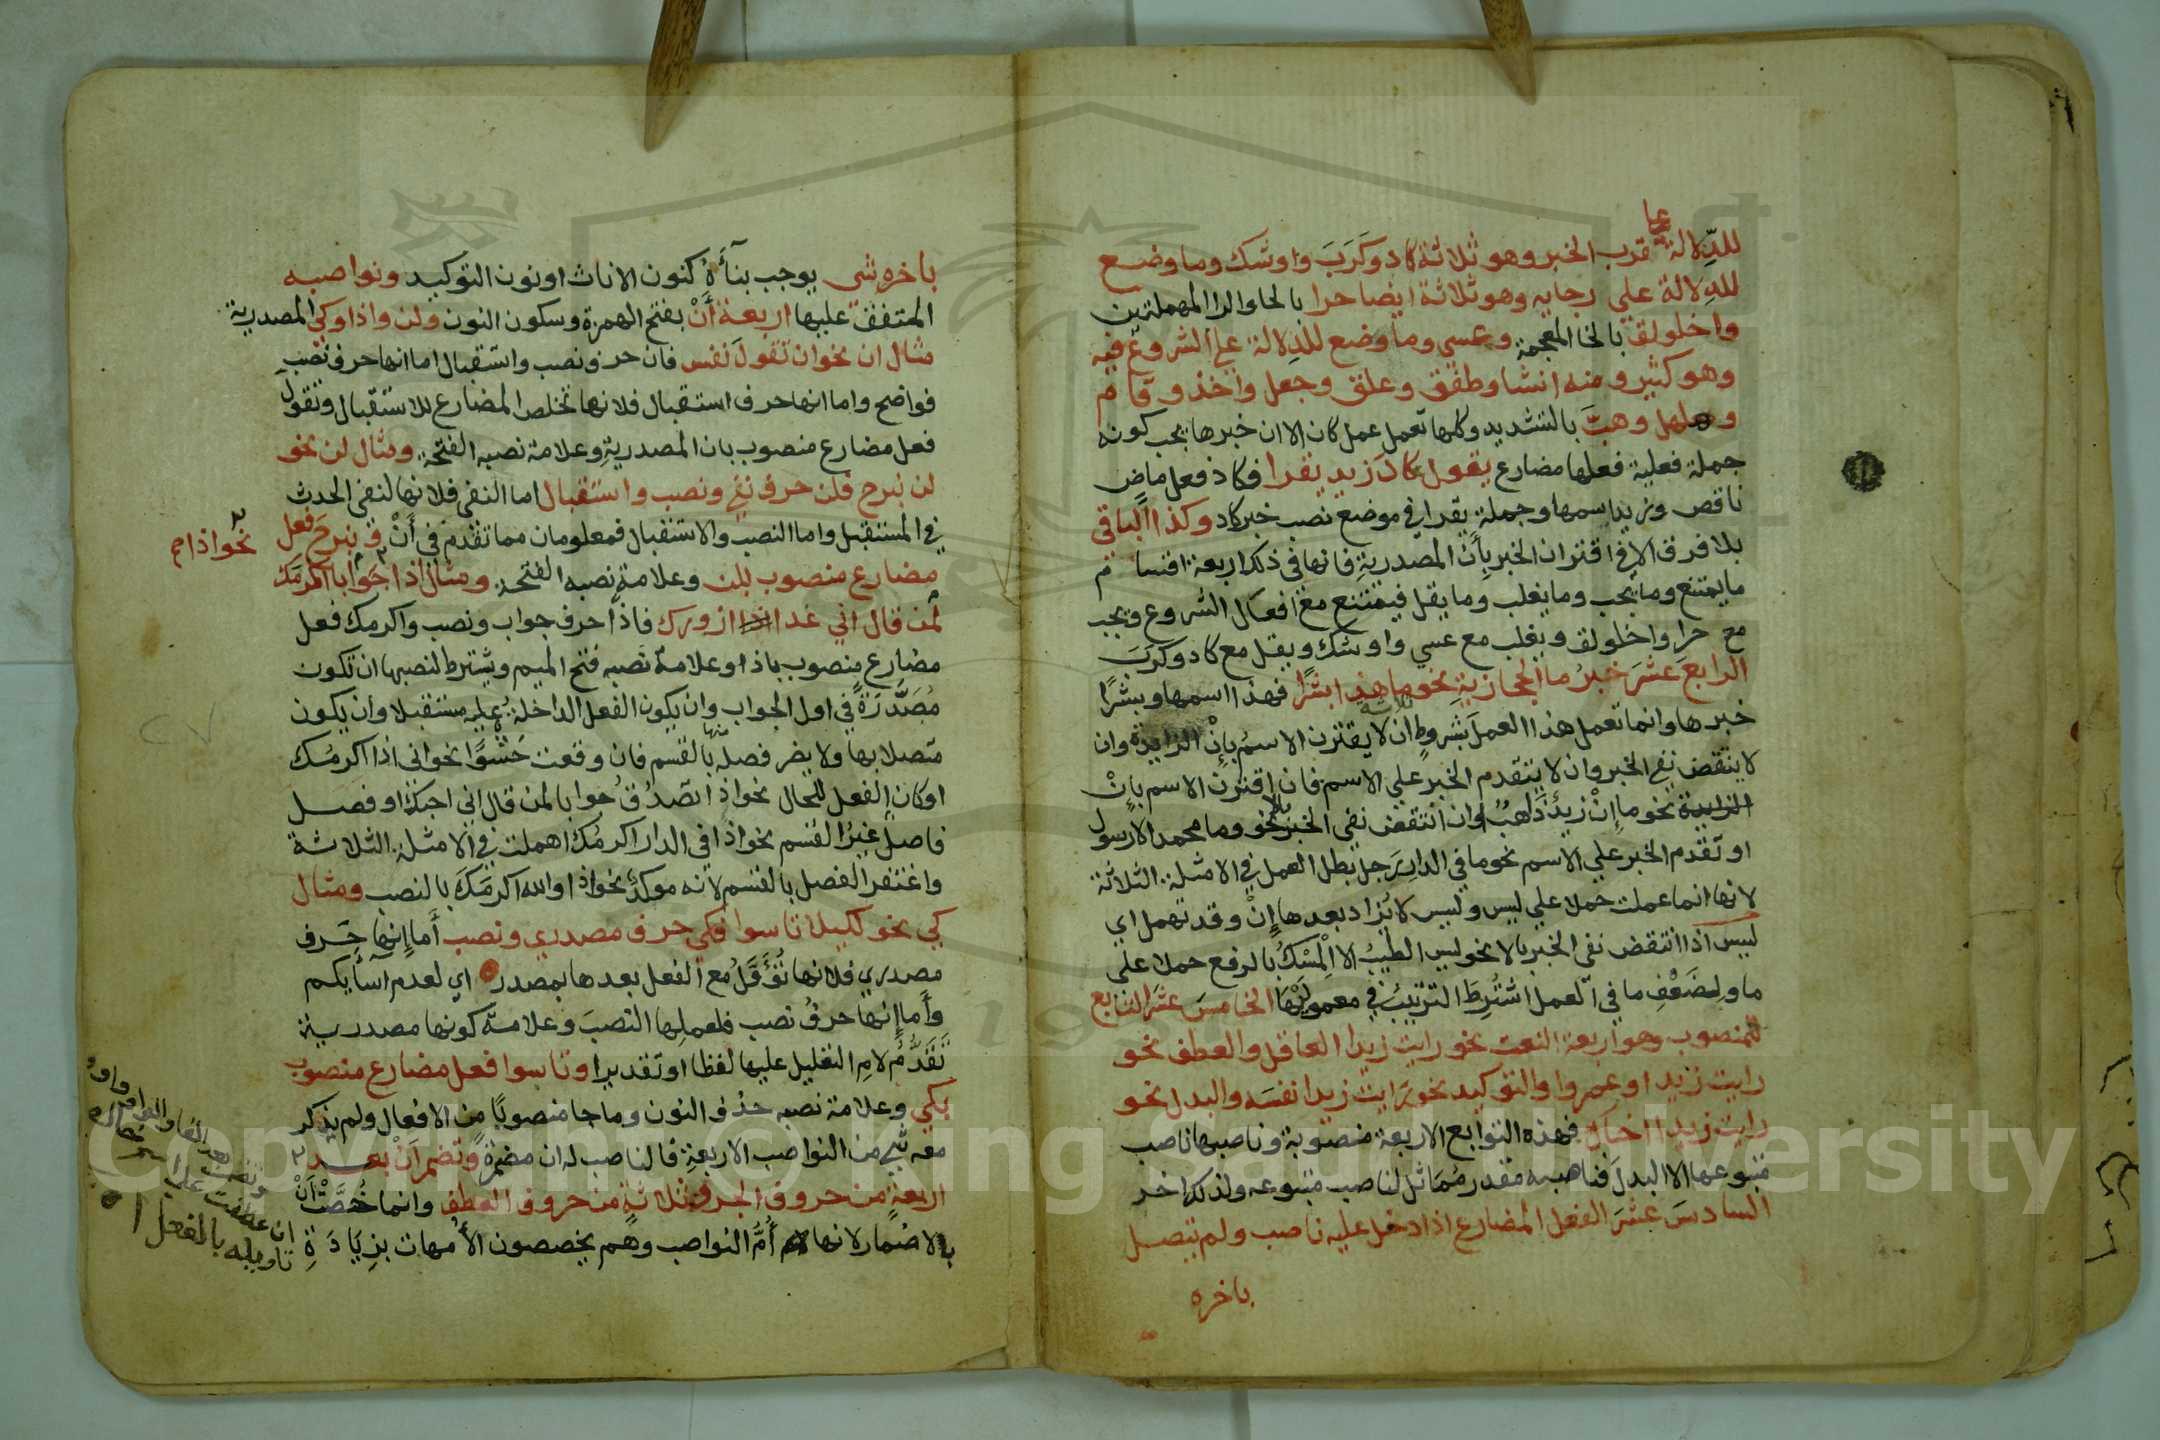 للدِّلالة على قرب الخبر وهو ثلاثة كاد وكَرَبَ واوشك وما وضع
للدِلالة علي رجايه وهو ثلاثة ايضا حرا بالحا والرا المهملتين
واخلولق بالخا المعجمة وعسي وما وضع للدِلالة علي الشروع فيه
وهو كثير ومنه انشا وطفق وعلق وجعل واخذ وقام
وهلهل وهبَّ بالتشديد وكلها تعمل عمل كان الا ان خبرها يجب كونه
جملة فعلية فعلها مضارع يقول كادَ زيد يقرا فكاد فعل ماض
ناقص وزيد اسمها وجملة يقرا في موضع نصب خبر كاد وكذا الباقي
بلا فرق الا في اقتران الخبر بِأَنْ المصدريةِ فانها في ذلك اربعة اقسام
ما يمتنع وما يجب وما يغلب وما يقل فيمتنع مع افعال الشروع ويجب
مع حرا واخلولق ويغلب مع عسي واوشك ويقل مع كاد وكَرَبَ
الرابعَ عشَرَ خبرُ ما الحجازيةِ نحو ما هذا بشرًا فهذا اسمها وبشرًا
خبرها وانما تعمل هذا العمل بشروطٍ ثلاثة ان لا يقترن الاسمُ بإِنْ الزايدة وان
لا ينتقض نفي الخبر وان لا يتقدم الخبر علي الاسم فان اقترن الاسم بإِنْ
الزايدة نحو ما إِنْ زيدٌ ذاهبٌ او ان انتقض نفي الخبر بالا نحو وما محمد الا رسول
او تقدم الخبر علي الاسم نحو ما في الدار رجل بطل العمل في الامثلة الثلاثة
لانها انما عملت حملا علي ليس وليس لا يُزاد بعدها إِنْ وقد تهمل اي
ليس اذا انتقض نفي الخبر بالا نحو ليس الطيبُ الا المِسْكُ بالرفع حملا علي
ما ولِضَعْفِ ما في العمل اشتُرِطَ الترتيبُ في معموليها الخامسَ عشَرَ التابع
للمنصوب وهو اربعة النعت نحو رايت زيدا العاقل والعطف نحو
رايت زيدا وعمروا والتوكيد نحو رايت زيدا نفسَه والبدل نحو
رايت زيدا اخاك فهذه التوابع الاربعة منصوبة وناصبها ناصب
متبوعها الا البدلَ فناصبه مقدر مُمَاثل لناصب متبوعه ولذلك اخر
السادسَ عشرَ الفعل المضارع اذا دخل عليه ناصب ولم يتصل
باخره
باخره شي يوجب بنأهُ كنون الاناث او نون التوكيد ونواصبه
المتفقَ عليها اربعة أَنْ بفتح الهمزة وسكون النون ولن واذا وكي المصدرية
مثال ان نحو ان تقولَ نفس فان حرف نصب واستقبال اما انها حرف نصب
فواضح واما انها حرف استقبال فلانها تخلص المضارع للاستقبال وتقول
فعل مضارع منصوب بان المصدريةِ وعلامة نصبه الفتحة ومثال لن نحو
لن نبرح فلن حرف نفي ونصب واستقبال اما النفي فلانها لنفي الحدث
في المستقبل واما النصب والاستقبال فمعلومان مما تقدم في أَنْ ونبرحَ فعل
نحو اذا
مضارع منصوب بلن وعلامة نصبه الفتحة ومثال اذا جوابا اكرمَك
لمن قال اني غدا ازورك فاذا حرف جواب ونصب واكرمك فعل
مضارع منصوب باذا وعلامة نصبه فتح الميم ويشترط لنصبها ان تكون
مُصَدَّرَةً في اول الجواب وان يكون الفعل الداخلة عليه مستقبلا وان يكون
متصلا بها ولا يضر فصله منها بالقسم فان وقعت حَشْوًا نحو اني اذا اكرمُك
او كان الفعل للحال نحو اذا تصدُقُ جوابا لمن قال اني احبك او فصل
فاصل غيرُ القسم نحو اذا في الدار اكرمُك اهملت في الامثلة الثلاثة
واغتفر الفصل بالقسم لانه موكدٌ نحو اذا والله اكرمَكَ بالنصب ومثال
كي نحو لكيلا تاسوا فكي حرف مصدري ونصب أَما إِنها حَرف
مصدري فلانها تُؤَوَّلُ مع الفعل بعدها بمصدر اي لعدم اسايكم
وأَما إِنها حرفُ نصب فلعملِها النصبَ وعلامة كونها مصدرية
تَقَدُّمُ لامِ التعليل عليها لفظا او تقديرا وتاسوا فعل مضارع منصوب
بكي وعلامة نصبه حذف النون وما جا منصوبًا من الافعال ولم يذكر
معه شي من النواصب الاربعةِ فالناصب له ان مضمرةً وتضمر أَنْ بعد
اربعةٍ من حروف الجر وثلاثةٍ من حروف العطف وانما خُصَّتْ أَنْ
بالاضمار لانها أُمُّ النواصب وهم يخصصون الأُمهات بزيَادَةِ
ان عطفت علي
تاويله بالفعل